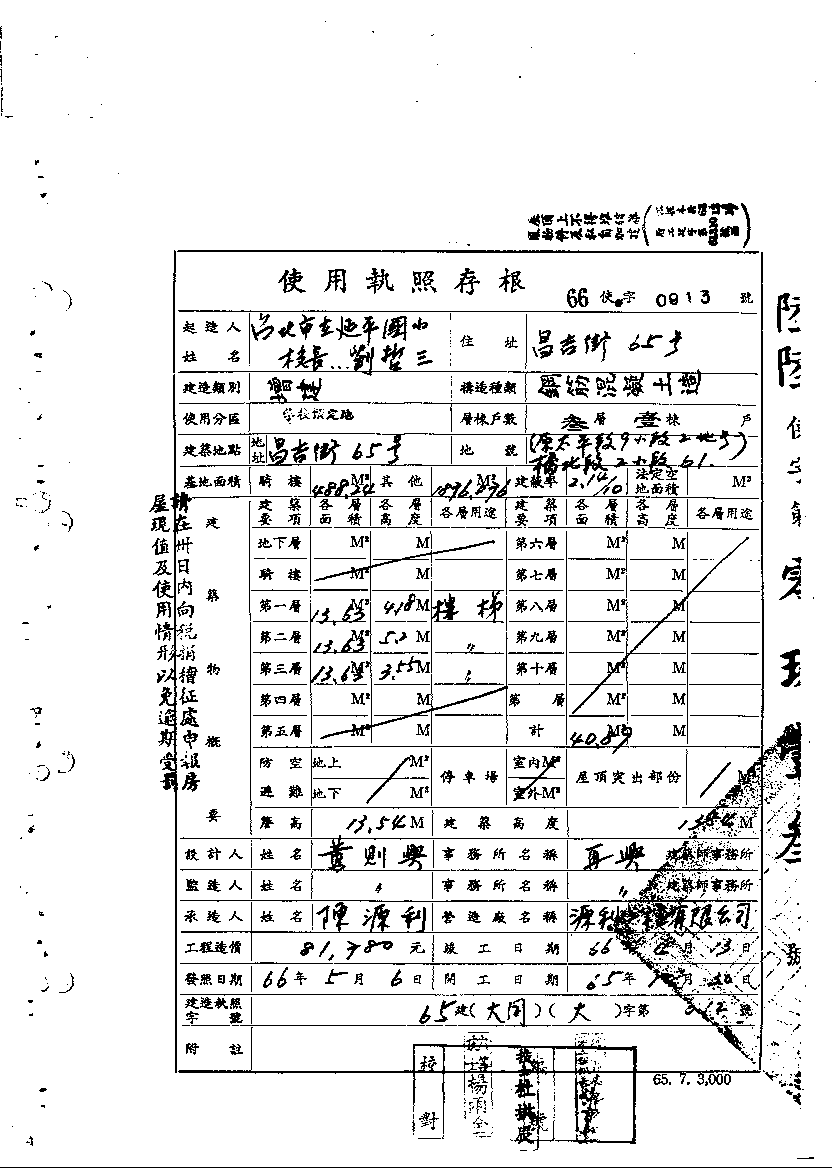 使用執照存根
66 使 字 0913 號
起造人姓名 台北市立延平國小 校長...劉哲三 住址 昌吉街 65号
建造類別 增建 構造種類 鋼筋混凝土造
使用分區 學校預定地 層棟戶數 叁層 壹棟 戶
建築地點 地址 昌吉街 65号 地號 (原太平段9小段2地号) 橋北段2小段61.
基地面積 騎樓 488.24 M² 其他 1896.896 M² 建蔽率 2.14/10 法定空地面積 M²
建築物概要
建築要項 各層面積 各層高度 各層用途 建築要項 各層面積 各層高度 各層用途
地下層 M² M 第六層 M² M
騎樓 M² M 第七層 M² M
第一層 13.63 M² 4.18 M 樓梯 第八層 M² M
第二層 13.63 M² 5.2 M 〃 第九層 M² M
第三層 13.63 M² 3.55 M 〃 第十層 M² M
第四層 M² M 第 層 M² M
第五層 M² M 計 40.89 M² M
防空避難 地上 M² 停車場 室內 M² 屋頂突出部份 M
地下 M² 室外 M²
簷高 13.54 M 建築高度 M
設計人 姓名 黃則興 事務所名稱 再興 建築師事務所
監造人 姓名 〃 事務所名稱 〃 建築師事務所
承造人 姓名 陳源利 營造廠名稱 源利 有限公司
工程造價 81,780 元 竣工日期 66 年 月 13 日
發照日期 66 年 5 月 6 日 開工日期 65 年 月 日
建造執照字號 65 建(大同)(大)字第 號
附註
校對
65. 7. 3,000
請在卅日內向稅捐稽征處申報房
屋現值及使用情形以免逾期受罰
陸陸使字第零玖壹叁號